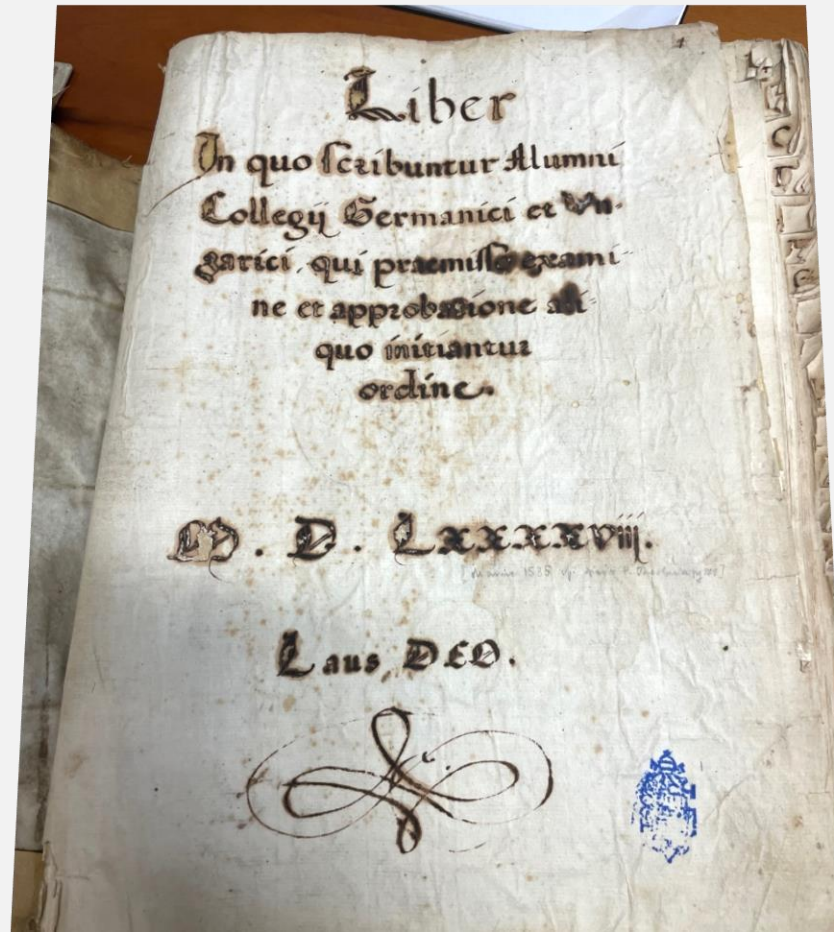 Liber
In quo scribuntur Alumni
Collegij Germanici et Vn-
garici, qui praemisso exami-
ne et approbatione ali-
quo initiantur
ordine.
M. D. Lxxxxviij.
Laus DEO.